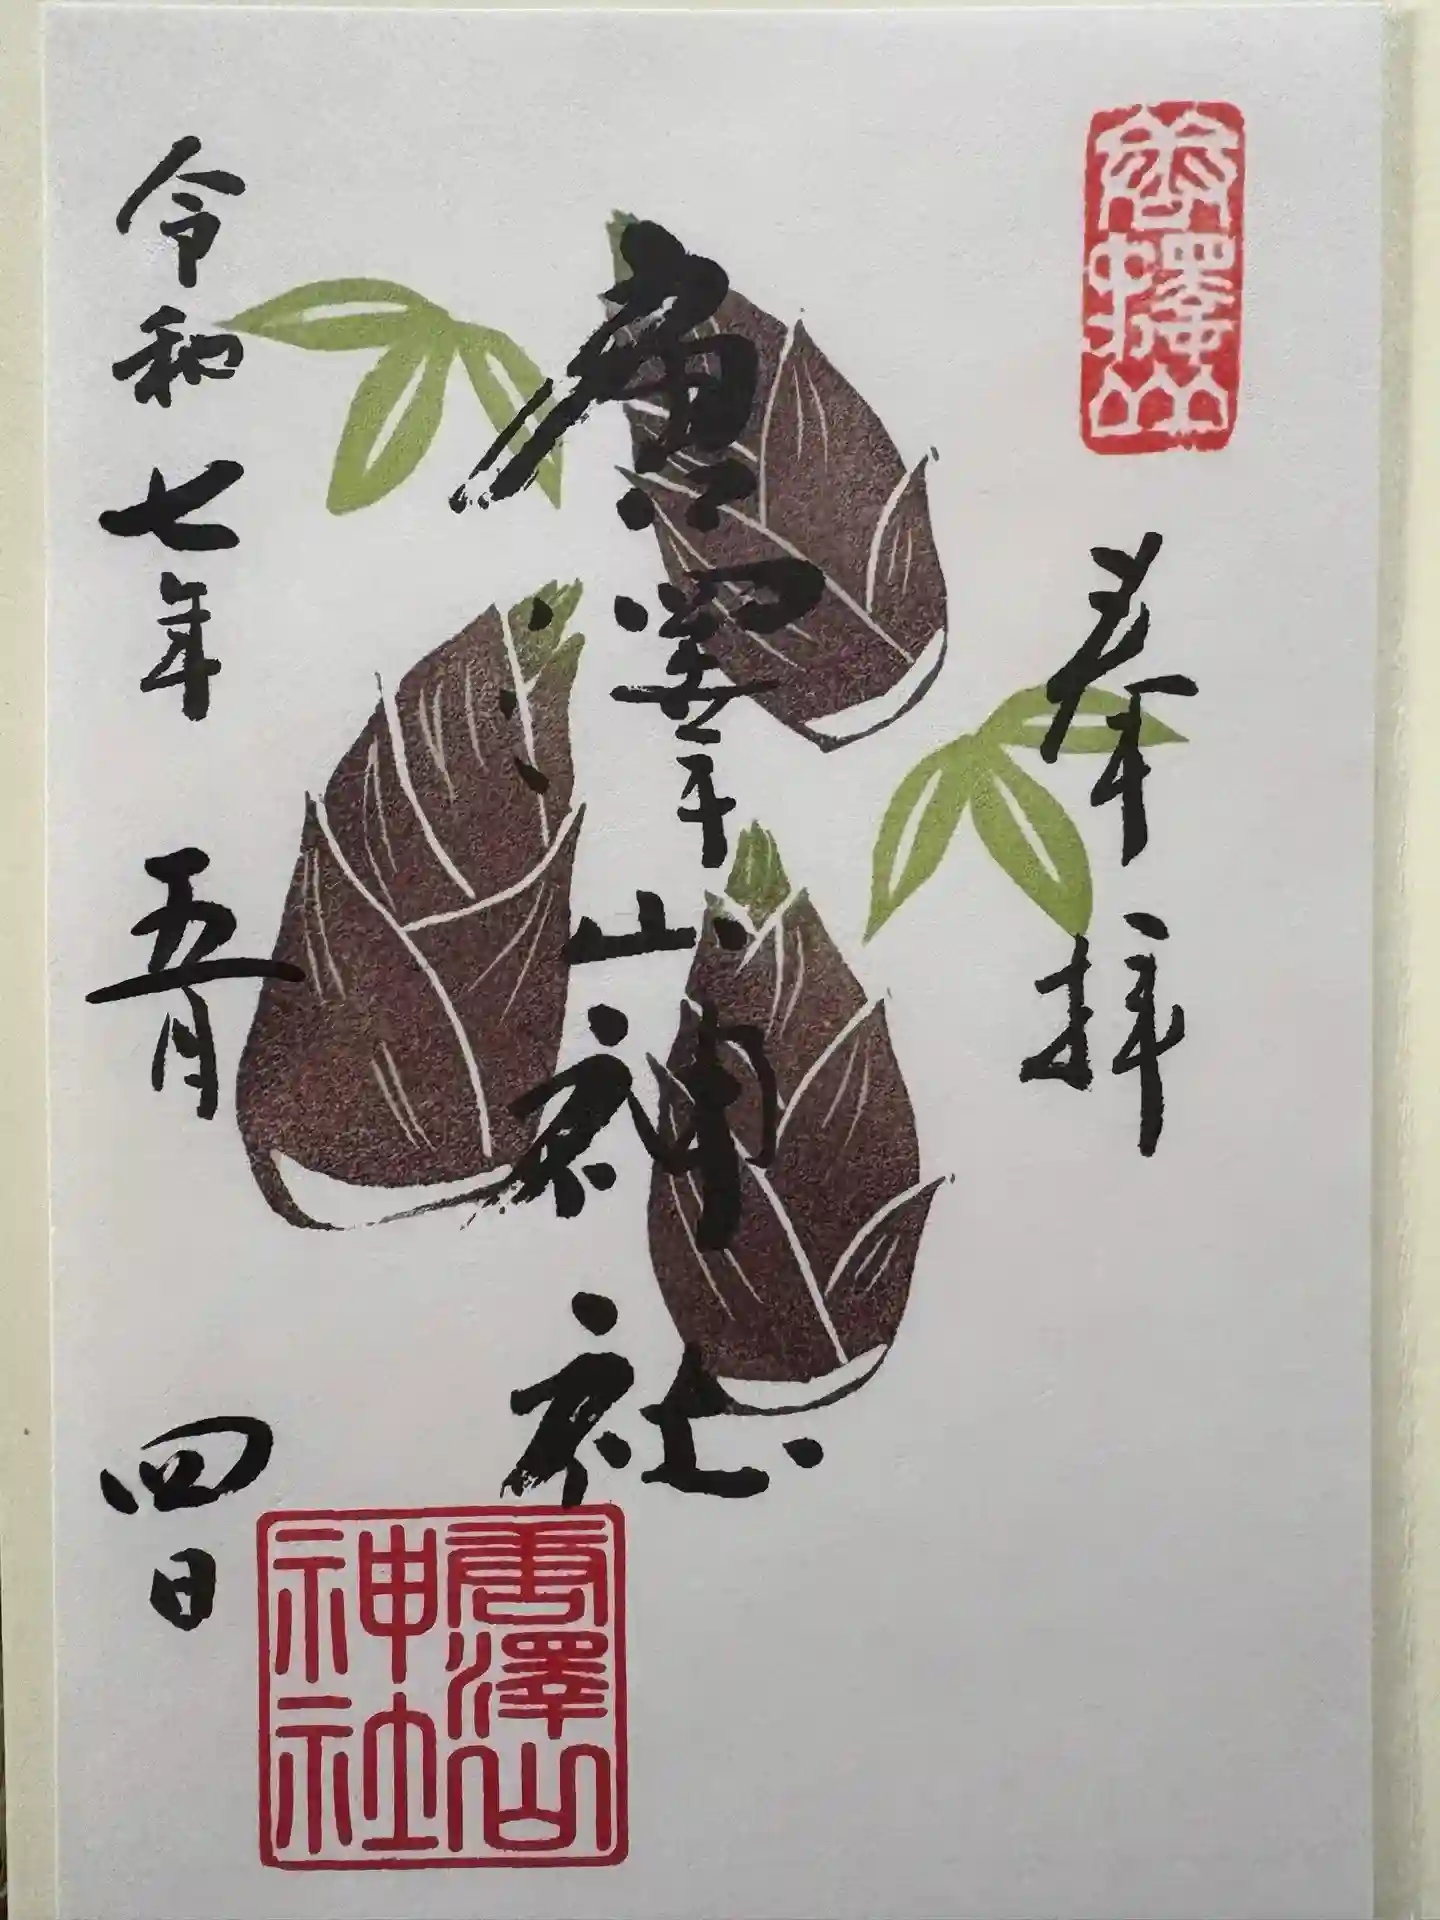 唐澤山
奉拝
唐澤山神社
唐澤山
神社
令和七年五月四日